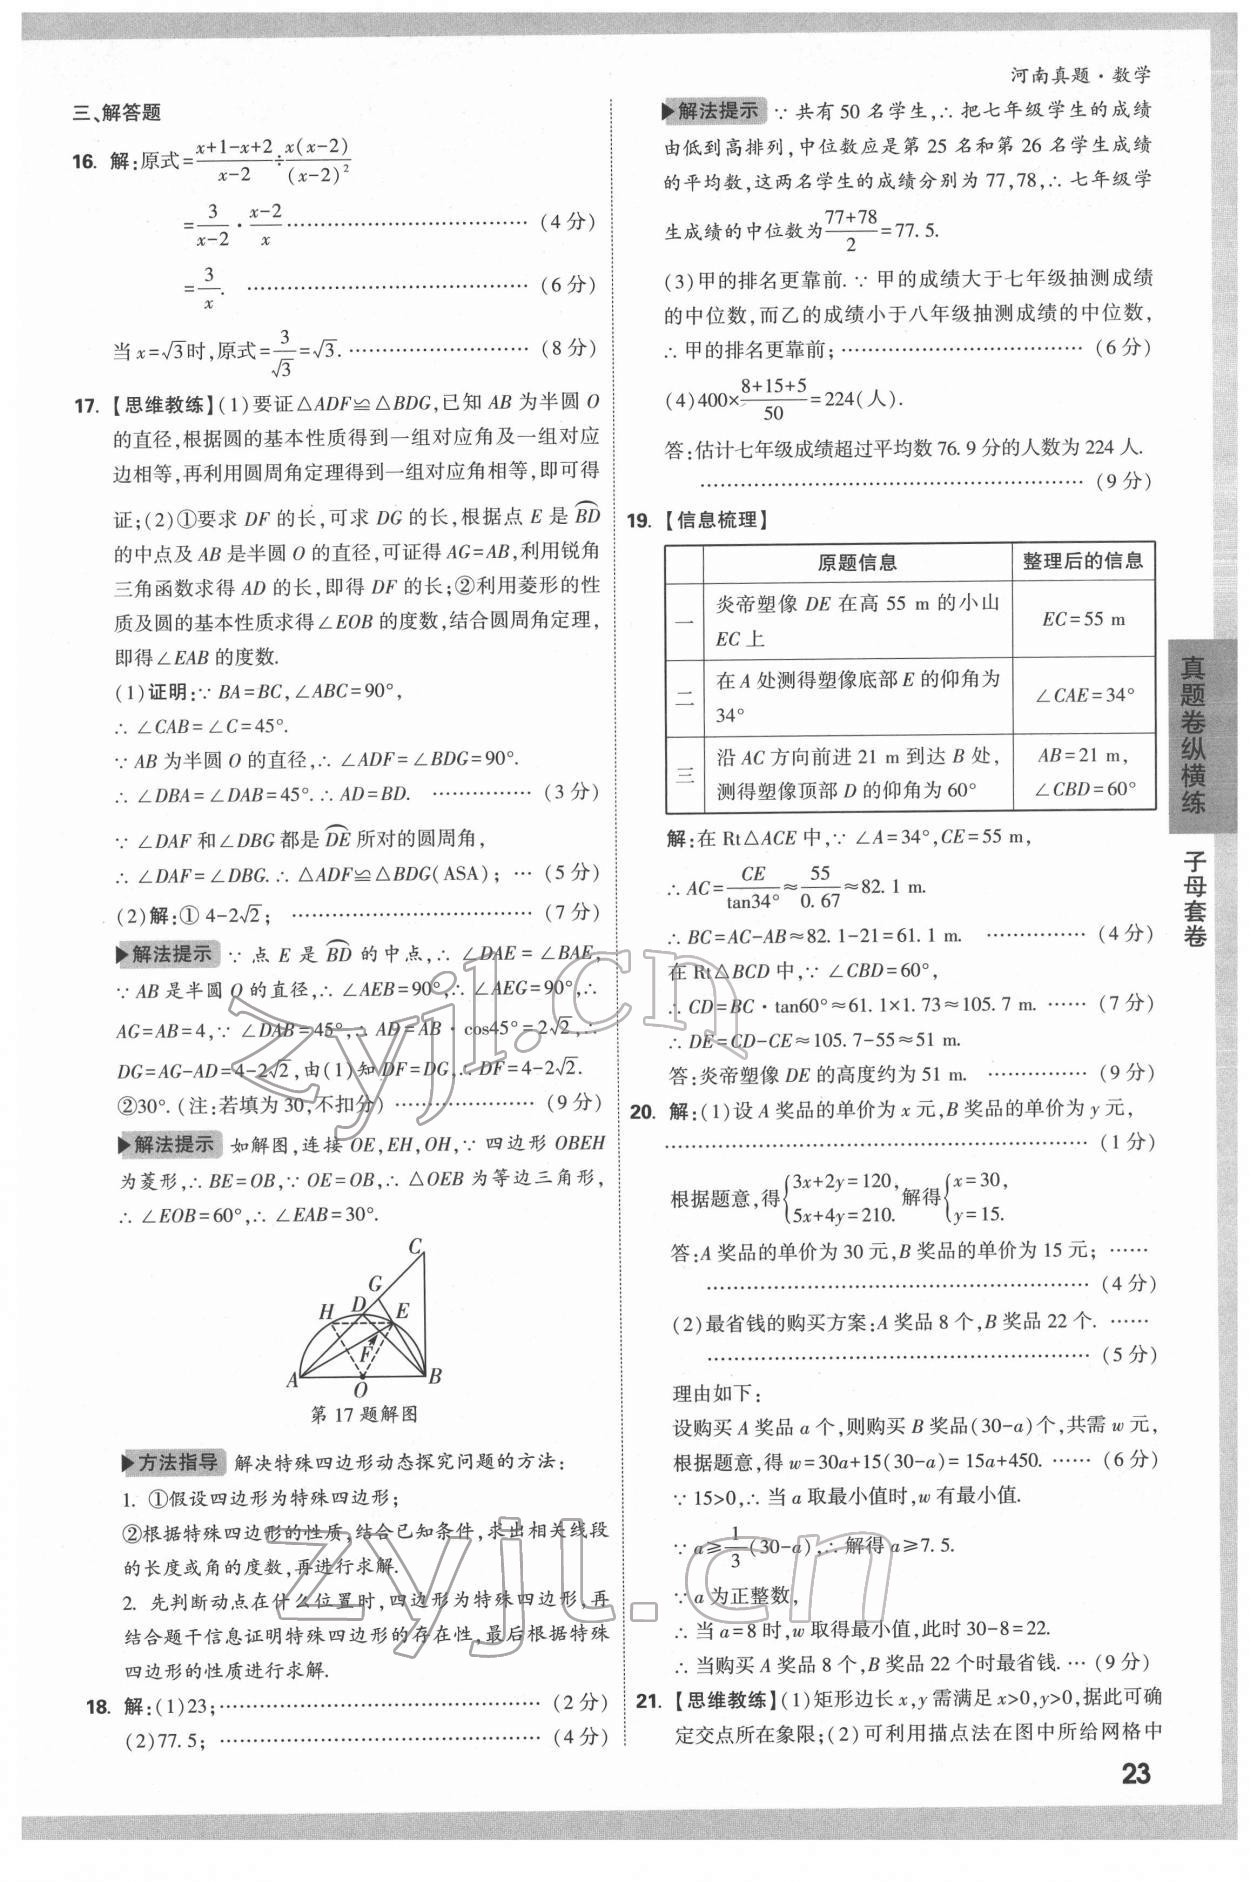 河南真题·数学
三、解答题
16. 解:原式=(x+1-x+2)/(x-2)÷x(x-2)/(x-2)²
=3/(x-2)·(x-2)/x ………………………… (4分)
=3/x. ………………………… (6分)
当x=√3时,原式=3/√3=√3. ………………………… (8分)
17. 【思维教练】(1)要证△ADF≌△BDG,已知AB为半圆O
的直径,根据圆的基本性质得到一组对应角及一组对应
边相等,再利用圆周角定理得到一组对应角相等,即可得
证;(2)①要求DF的长,可求DG的长,根据点E是BD⌒
的中点及AB是半圆O的直径,可证得AG=AB,利用锐角
三角函数求得AD的长,即得DF的长;②利用菱形的性
质及圆的基本性质求得∠EOB的度数,结合圆周角定理,
即得∠EAB的度数.
(1)证明:∵BA=BC,∠ABC=90°,
∴∠CAB=∠C=45°.
∵AB为半圆O的直径,∴∠ADF=∠BDG=90°.
∴∠DBA=∠DAB=45°.∴AD=BD. …………… (3分)
∵∠DAF和∠DBG都是DE⌒所对的圆周角,
∴∠DAF=∠DBG.∴△ADF≌△BDG(ASA); … (5分)
(2)解:①4-2√2; ………………………… (7分)
▶解法提示 ∵点E是BD⌒的中点,∴∠DAE=∠BAE,
∵AB是半圆O的直径,∴∠AEB=90°,∴∠AEG=90°,∴
AG=AB=4,∵∠DAB=45°,∴AD=AB·cos45°=2√2,∴
DG=AG-AD=4-2√2,由(1)知DF=DG,∴DF=4-2√2.
②30°.(注:若填为30,不扣分) …………… (9分)
▶解法提示 如解图,连接OE,EH,OH,∵四边形OBEH
为菱形,∴BE=OB,∵OE=OB,∴△OEB为等边三角形,
∴∠EOB=60°,∴∠EAB=30°.
C
G
H D E
F
A O B
第17题解图
▶方法指导 解决特殊四边形动态探究问题的方法:
1. ①假设四边形为特殊四边形;
②根据特殊四边形的性质,结合已知条件,求出相关线段
的长度或角的度数,再进行求解.
2. 先判断动点在什么位置时,四边形为特殊四边形,再
结合题干信息证明特殊四边形的存在性,最后根据特殊
四边形的性质进行求解.
18. 解:(1)23;………………………… (2分)
(2)77.5; ………………………… (4分)
▶解法提示 ∵共有50名学生,∴把七年级学生的成绩
由低到高排列,中位数应是第25名和第26名学生成绩
的平均数,这两名学生的成绩分别为77,78,∴七年级学
生成绩的中位数为(77+78)/2=77.5.
(3)甲的排名更靠前.∵甲的成绩大于七年级抽测成绩
的中位数,而乙的成绩小于八年级抽测成绩的中位数,
∴甲的排名更靠前;………………………… (6分)
(4)400×(8+15+5)/50=224(人).
答:估计七年级成绩超过平均数76.9分的人数为224人.
………………………… (9分)
19. 【信息梳理】
原题信息 整理后的信息
一 炎帝塑像DE在高55 m的小山EC上 EC=55 m
二 在A处测得塑像底部E的仰角为34° ∠CAE=34°
三 沿AC方向前进21 m到达B处,测得塑像顶部D的仰角为60° AB=21 m,∠CBD=60°
解:在Rt△ACE中,∵∠A=34°,CE=55 m,
∴AC=CE/tan34°≈55/0.67≈82.1 m.
∴BC=AC-AB≈82.1-21=61.1 m. …………… (4分)
在Rt△BCD中,∵∠CBD=60°,
∴CD=BC·tan60°≈61.1×1.73≈105.7 m. …… (7分)
∴DE=CD-CE≈105.7-55≈51 m.
答:炎帝塑像DE的高度约为51 m. …………… (9分)
20. 解:(1)设A奖品的单价为x元,B奖品的单价为y元,
………………………… (1分)
根据题意,得{3x+2y=120, 5x+4y=210. 解得{x=30, y=15.
答:A奖品的单价为30元,B奖品的单价为15元; ……
………………………… (4分)
(2)最省钱的购买方案:A奖品8个,B奖品22个. ……
………………………… (5分)
理由如下:
设购买A奖品a个,则购买B奖品(30-a)个,共需w元,
根据题意,得w=30a+15(30-a)=15a+450. …… (6分)
∵15>0,∴当a取最小值时,w有最小值.
∵a≥1/3(30-a),∴解得a≥7.5.
∵a为正整数,
∴当a=8时,w取得最小值,此时30-8=22.
∴当购买A奖品8个,B奖品22个时最省钱. … (9分)
21. 【思维教练】(1)矩形边长x,y需满足x>0,y>0,据此可确
定交点所在象限;(2)可利用描点法在图中所给网格中
真题卷纵横练
子母套卷
23
zyjl.cn
zyjl.cn